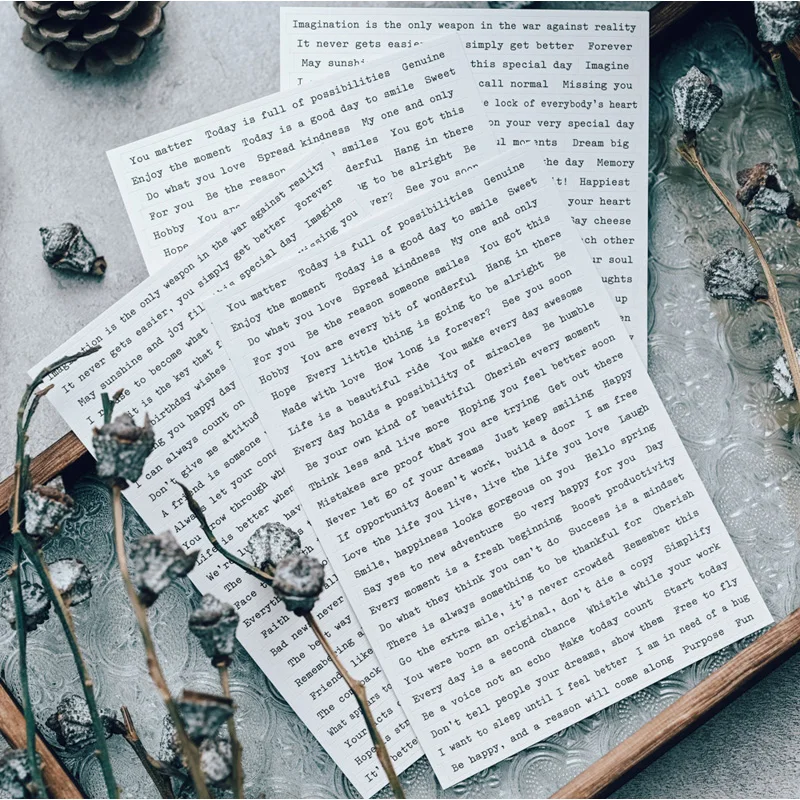 Imagination is the only weapon in the war against reality
It never gets simply get better Forever
May this special day Imagine
call normal Missing you
lock of everybody's heart
on your very special day
Dream big
the day Memory
Happiest
your heart
day cheese
each other
your soul
up
You matter Today is full of possibilities Genuine
Enjoy the moment Today is a good day to smile Sweet
Do what you love Spread kindness My one and only
For you Be the reason smiles You got this
Hobby You are Hang in there
Hope to be alright Be
See you soon
Imagination is the only weapon in the war against reality
It never gets easier, you simply get better Forever
May sunshine and joy special day Imagine
to become what Missing you
is the key that
birthday wishes
you happy day
can always count on
Don't give me
A friend is someone
Always let your
You grow through
Life is better when
We're
The
Face
Everything
Faith
Bad news never
The best way
Remembering
Friend like
The comeback
What appears to
Your
Hope is
It's better
You matter Today is full of possibilities Genuine
Enjoy the moment Today is a good day to smile Sweet
Do what you love Spread kindness My one and only
For you Be the reason someone smiles You got this
Hobby You are every bit of wonderful Hang in there
Hope Every little thing is going to be alright Be
Made with love How long is forever? See you soon
Life is a beautiful ride You make every day awesome
Every day holds a possibility of miracles Be humble
Be your own kind of beautiful Cherish every moment
Think less and live more Hoping you feel better soon
Mistakes are proof that you are trying Get out there
Never let go of your dreams Just keep smiling Happy
If opportunity doesn't work, build a door I am free
Love the life you live, live the life you love Laugh
Smile, happiness looks gorgeous on you Hello spring
Say yes to new adventure So very happy for you Day
Every moment is a fresh beginning Boost productivity
Do what they think you can't do Success is a mindset
There is always something to be thankful for Cherish
Go the extra mile, it's never crowded Remember this
You were born an original, don't die a copy Simplify
Every day is a second chance Whistle while your work
Be a voice not an echo Make today count Start today
Don't tell people your dreams, show them Free to fly
I want to sleep until I feel better I am in need of a hug
Be happy, and a reason will come along Purpose Fun